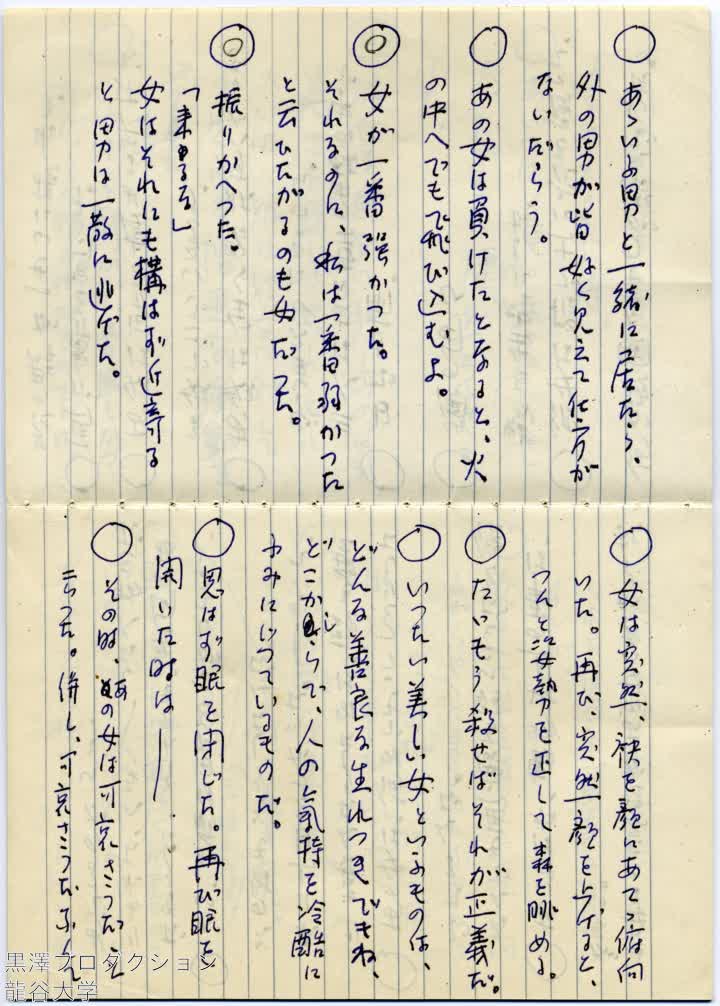 ○ あゝいふ男と一緒に居たら、
外の男が皆好く見えて仕方が
ないだらう。
○ あの女は負けたとなると、火
の中へでも飛び込むよ。
◎ 女が一番強かつた。
それなのに、私は一番弱かつた
と云ひたがるのも女だつた。
◎ 振りかへつた。
「来るな」
女はそれにも構はず近寄る
と男は一散に逃げた。
○ 女は突然、袂を顔にあてゝ俯向
いた。再び、突然顔を上げると、
つんと姿勢を正して森を眺める。
○ たいもう殺せばそれが正義だ。
○ いつたい美しい女といふものは、
どんな善良な生れつきでもね、
どこかしらで、人の気持を冷酷に
ふみにじつているものだ。
○ 思はず眼を閉じた。再び眼を
開いた時は──
○ その時、あの女は可哀さうだと
云つた。併し、可哀さうだなんて
黒澤プロダクション
龍谷大学